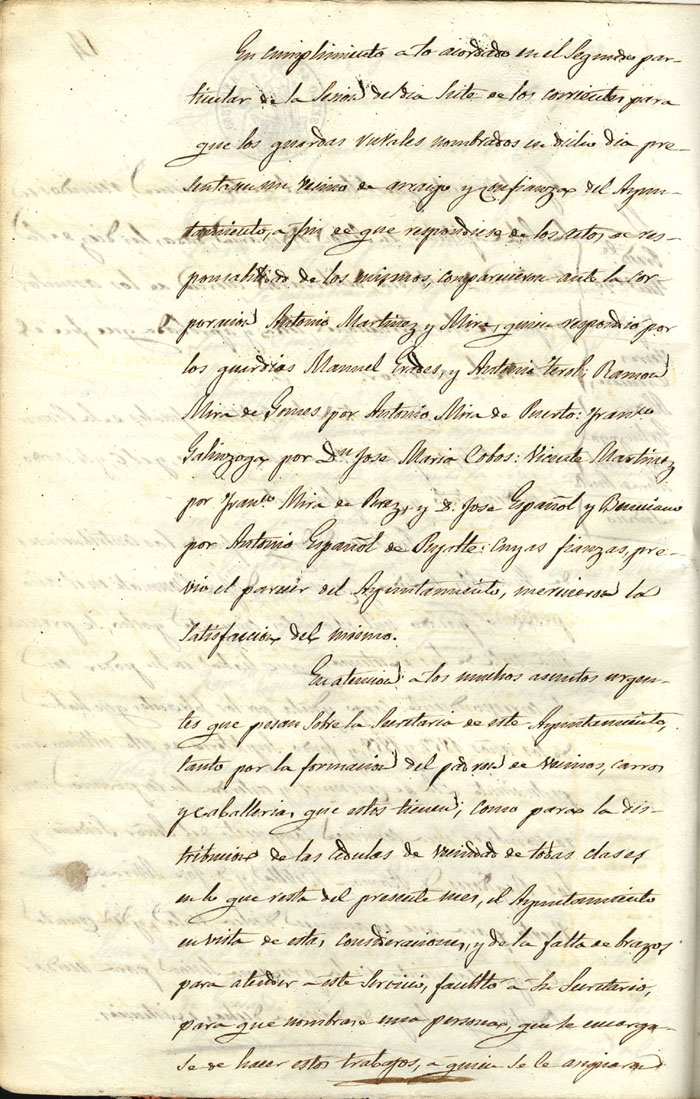 En cumplimiento a lo acordado en el Segundo par-
ticular de la Sesion del dia siete de los corrientes para
que los guardas rurales nombrados en dicho dia pre-
sentasen un vecino de arraigo y confianza del Ayun-
tamiento, a fin de que respondiese de los actos de res-
ponsabilidad de los mismos, comparecieron ante la cor-
poracion Antonio Martinez y Mira, quien respondio por
los guardias Manuel Erades, y Antonio Terol: Ramon
Mira de Gomes por Antonio Mira de Puerto: Fran.co
Galinzoga por D.n Jose Maria Cobos: Vicente Martinez
por Fran.co Mira de Perez, y D. Jose Español y
por Antonio Español de : cuyas fianzas, pre-
vio el parecer del Ayuntamiento, merecieron la
satisfaccion del mismo.
En atencion a los muchos asuntos urgen-
tes que pesan sobre la Secretaria de este Ayuntamiento,
tanto por la formacion del padron de vecinos, carros
y caballerias que estos tienen, como para la dis-
tribucion de las cedulas de vecindad de todas clases
en lo que resta del presente mes, el Ayuntamiento
en vista de estas consideraciones, y de la falta de brazos
para atender a este servicio, facultó a su Secretario,
para que nombrase una persona, que se encarga-
se de hacer estos trabajos, a quien se le asignaran